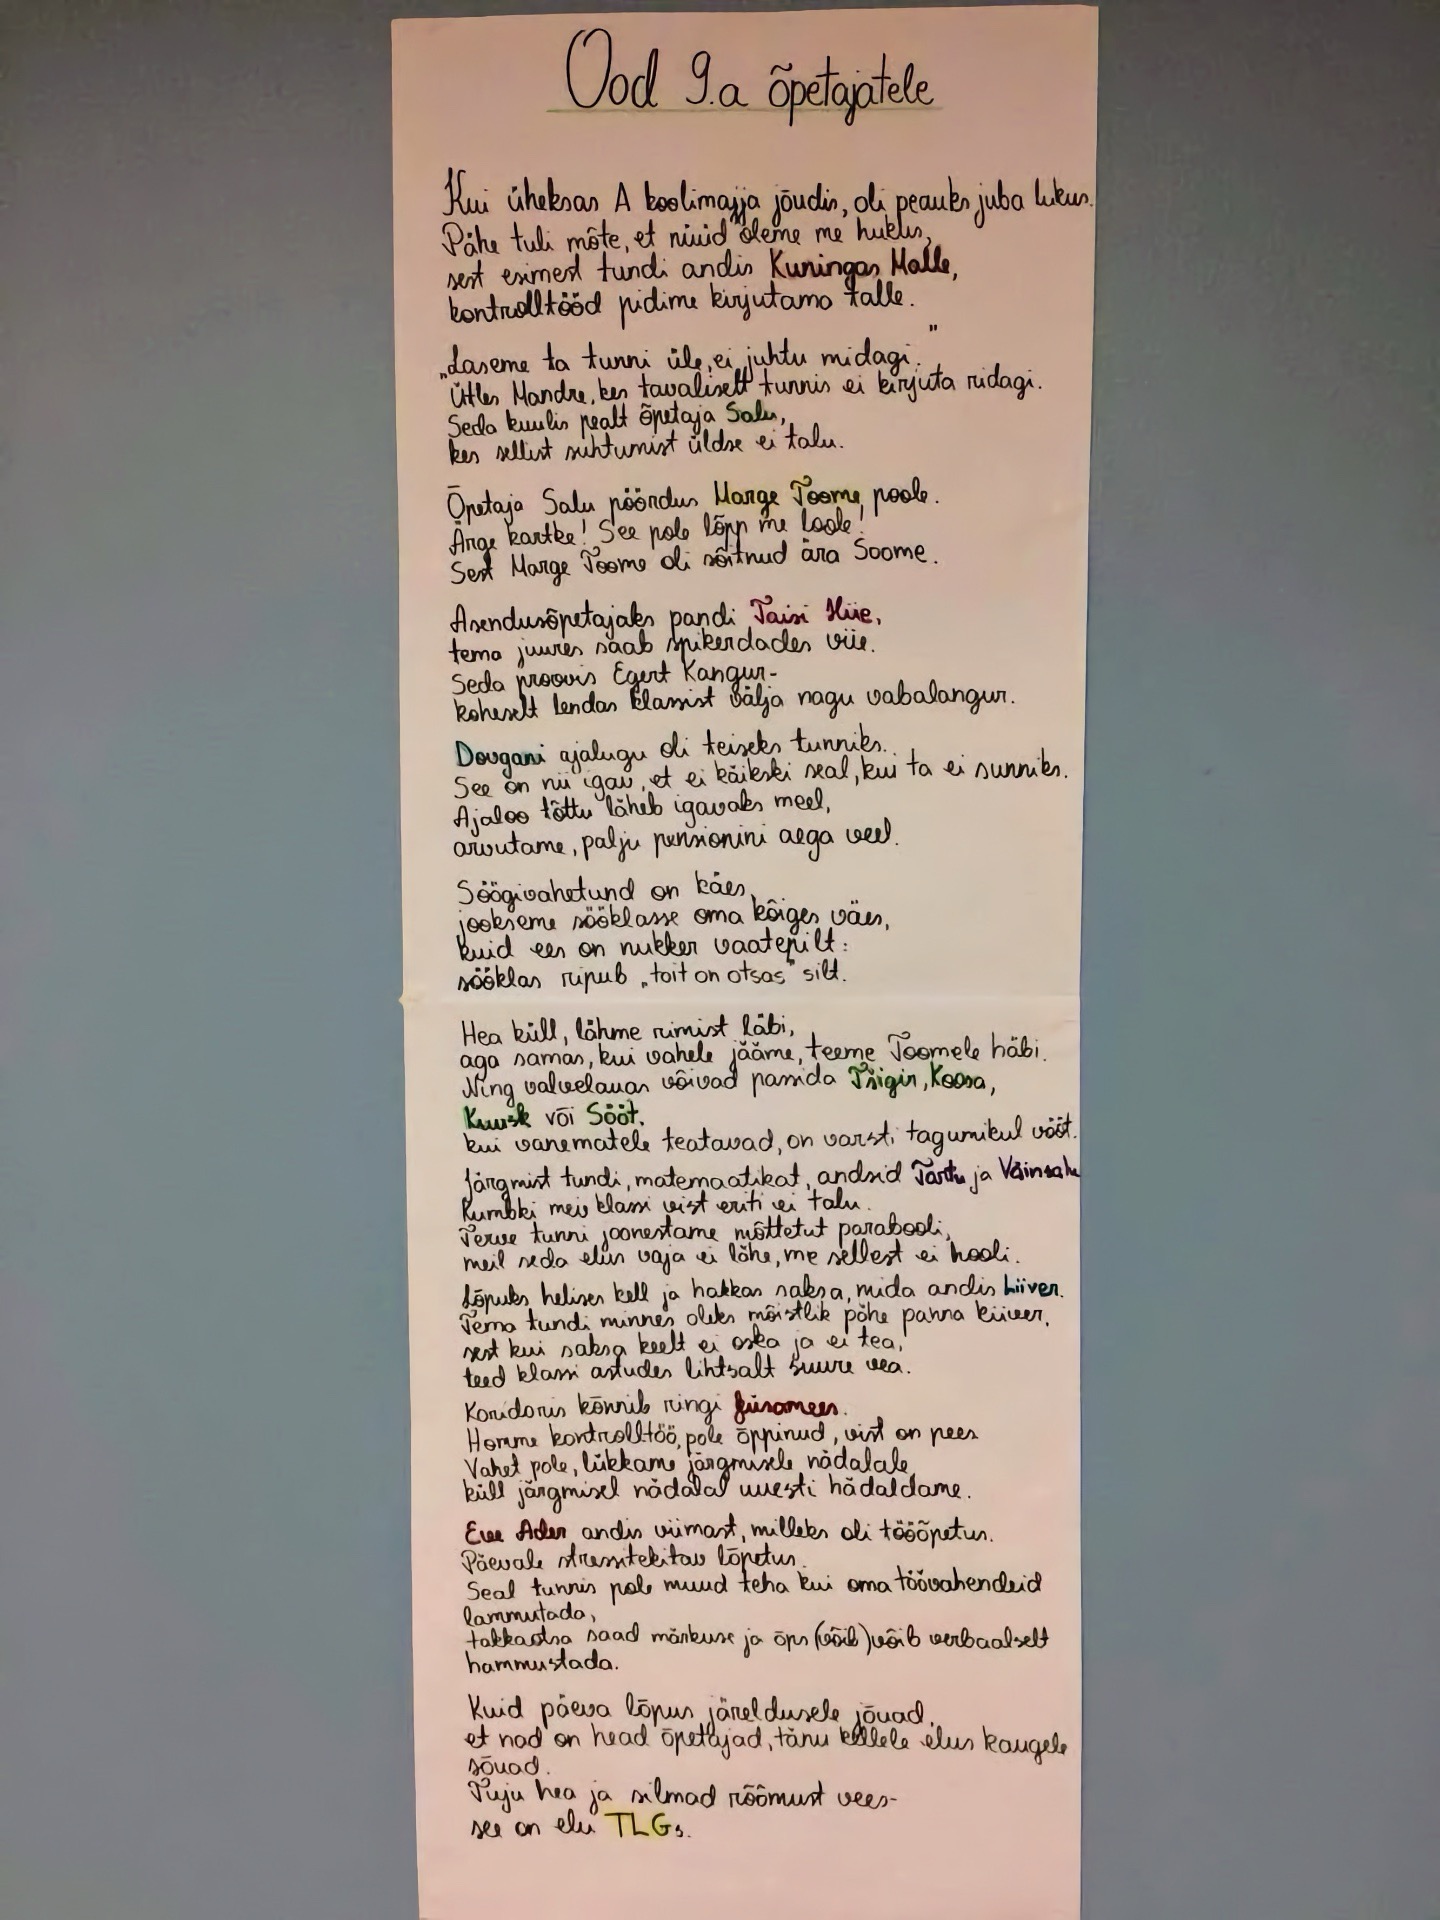 Ood 9.a õpetajatele
Kui üheksas A koolimajja jõudis, oli peauks juba lukus.
Pähe tuli mõte, et nüüd oleme me hukus,
sest esimest tundi andis Kuningas Malle,
kontrolltööd pidime kirjutama talle.
„Laseme ta tunni üle, ei juhtu midagi."
Ütles Mandre, kes tavaliselt tunnis ei kirjuta ridagi.
Seda kuulis pealt õpetaja Salu,
kes sellist suhtumist üldse ei talu.
Õpetaja Salu pöördus Marge Toome poole.
Ärge kartke! See pole lõpp me loole!
Sest Marge Toome oli sõitnud ära Soome.
Asendusõpetajaks pandi Taisi Hiie,
tema juures saab spikerdades viie.
Seda proovis Egert Kangur-
koheselt lendas klassist välja nagu vabalangur.
Dougani ajalugu oli teiseks tunniks.
See on nii igav, et ei käikski seal, kui ta ei sunniks.
Ajaloo tõttu läheb igavaks meel,
arvutame, palju pensionini aega veel.
Söögivahetund on käes,
jookseme sööklasse oma kõiges väes,
kuid ees on nukker vaatepilt:
sööklas ripub „toit on otsas" silt.
Hea küll, lähme rimist läbi,
aga samas, kui vahele jääme, teeme Toomele häbi.
Ning valvelauas võivad passida Tsigir, Koosa,
Kuusk või Sööt.
kui vanematele teatavad, on varsti tagumikul vööt.
Järgmist tundi, matemaatikat, andsid Tartu ja Väinsalu
Kumbki meie klassi vist eriti ei talu.
Terve tunni joonestame mõttetut parabooli,
meil seda elus vaja ei lähe, me sellest ei hooli.
Lõpuks helises kell ja hakkas saksa, mida andis Liiver.
Tema tundi minnes oleks mõistlik pähe panna kiiver,
sest kui saksa keelt ei oska ja ei tea,
teed klassi astudes lihtsalt suure vea.
Koridoris kõnnib ringi füsamees.
Homme kontrolltöö, pole õppinud, vist on pees
Vahet pole, lükkame järgmisele nädalale
küll järgmisel nädalal uuesti hädaldame.
Eve Ader andis viimast, milleks oli tööõpetus.
Päevale stressitekitav lõpetus.
Seal tunnis pole muud teha kui oma töövahendeid
lammutada,
takkaotsa saad märkuse ja õps (võib) võib verbaalselt
hammustada.
Kuid päeva lõpus järeldusele jõuad,
et nad on head õpetajad, tänu kellele elus kaugele
sõuad.
Tuju hea ja silmad rõõmust vees-
see on elu TLGs.